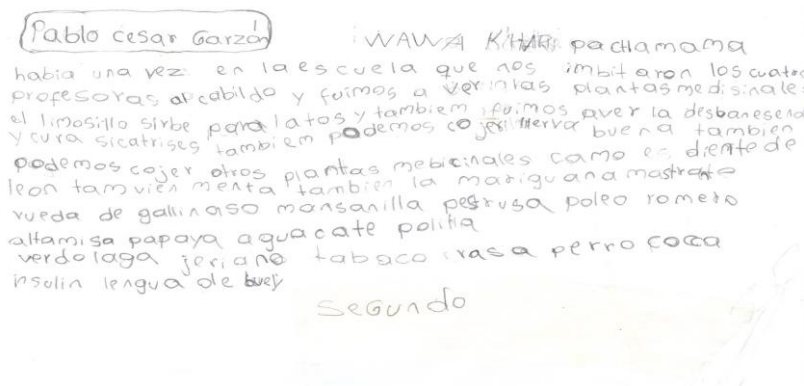 Pablo cesar Garzón
WAWA KHARI pachamama
habia una vez en la escuela que nos imbitaron los cuatro
profesoras al cabildo y fuimos a ver las plantas medisinales
el limosillo sirbe para la tos y tambiem fuimos aver la desbanesend
y cura sicatrises tambiem podemos cojer llerva buena tambien
podemos cojer otros plantas mebicinales como es diente de
leon tamvien menta tambien la mariguana mastranto
rueda de gallinaso mansanilla pegrusa poleo romero
altamisa papaya aguacate
verdolaga tabaco perro coca
insulin lengua de buey
Segundo